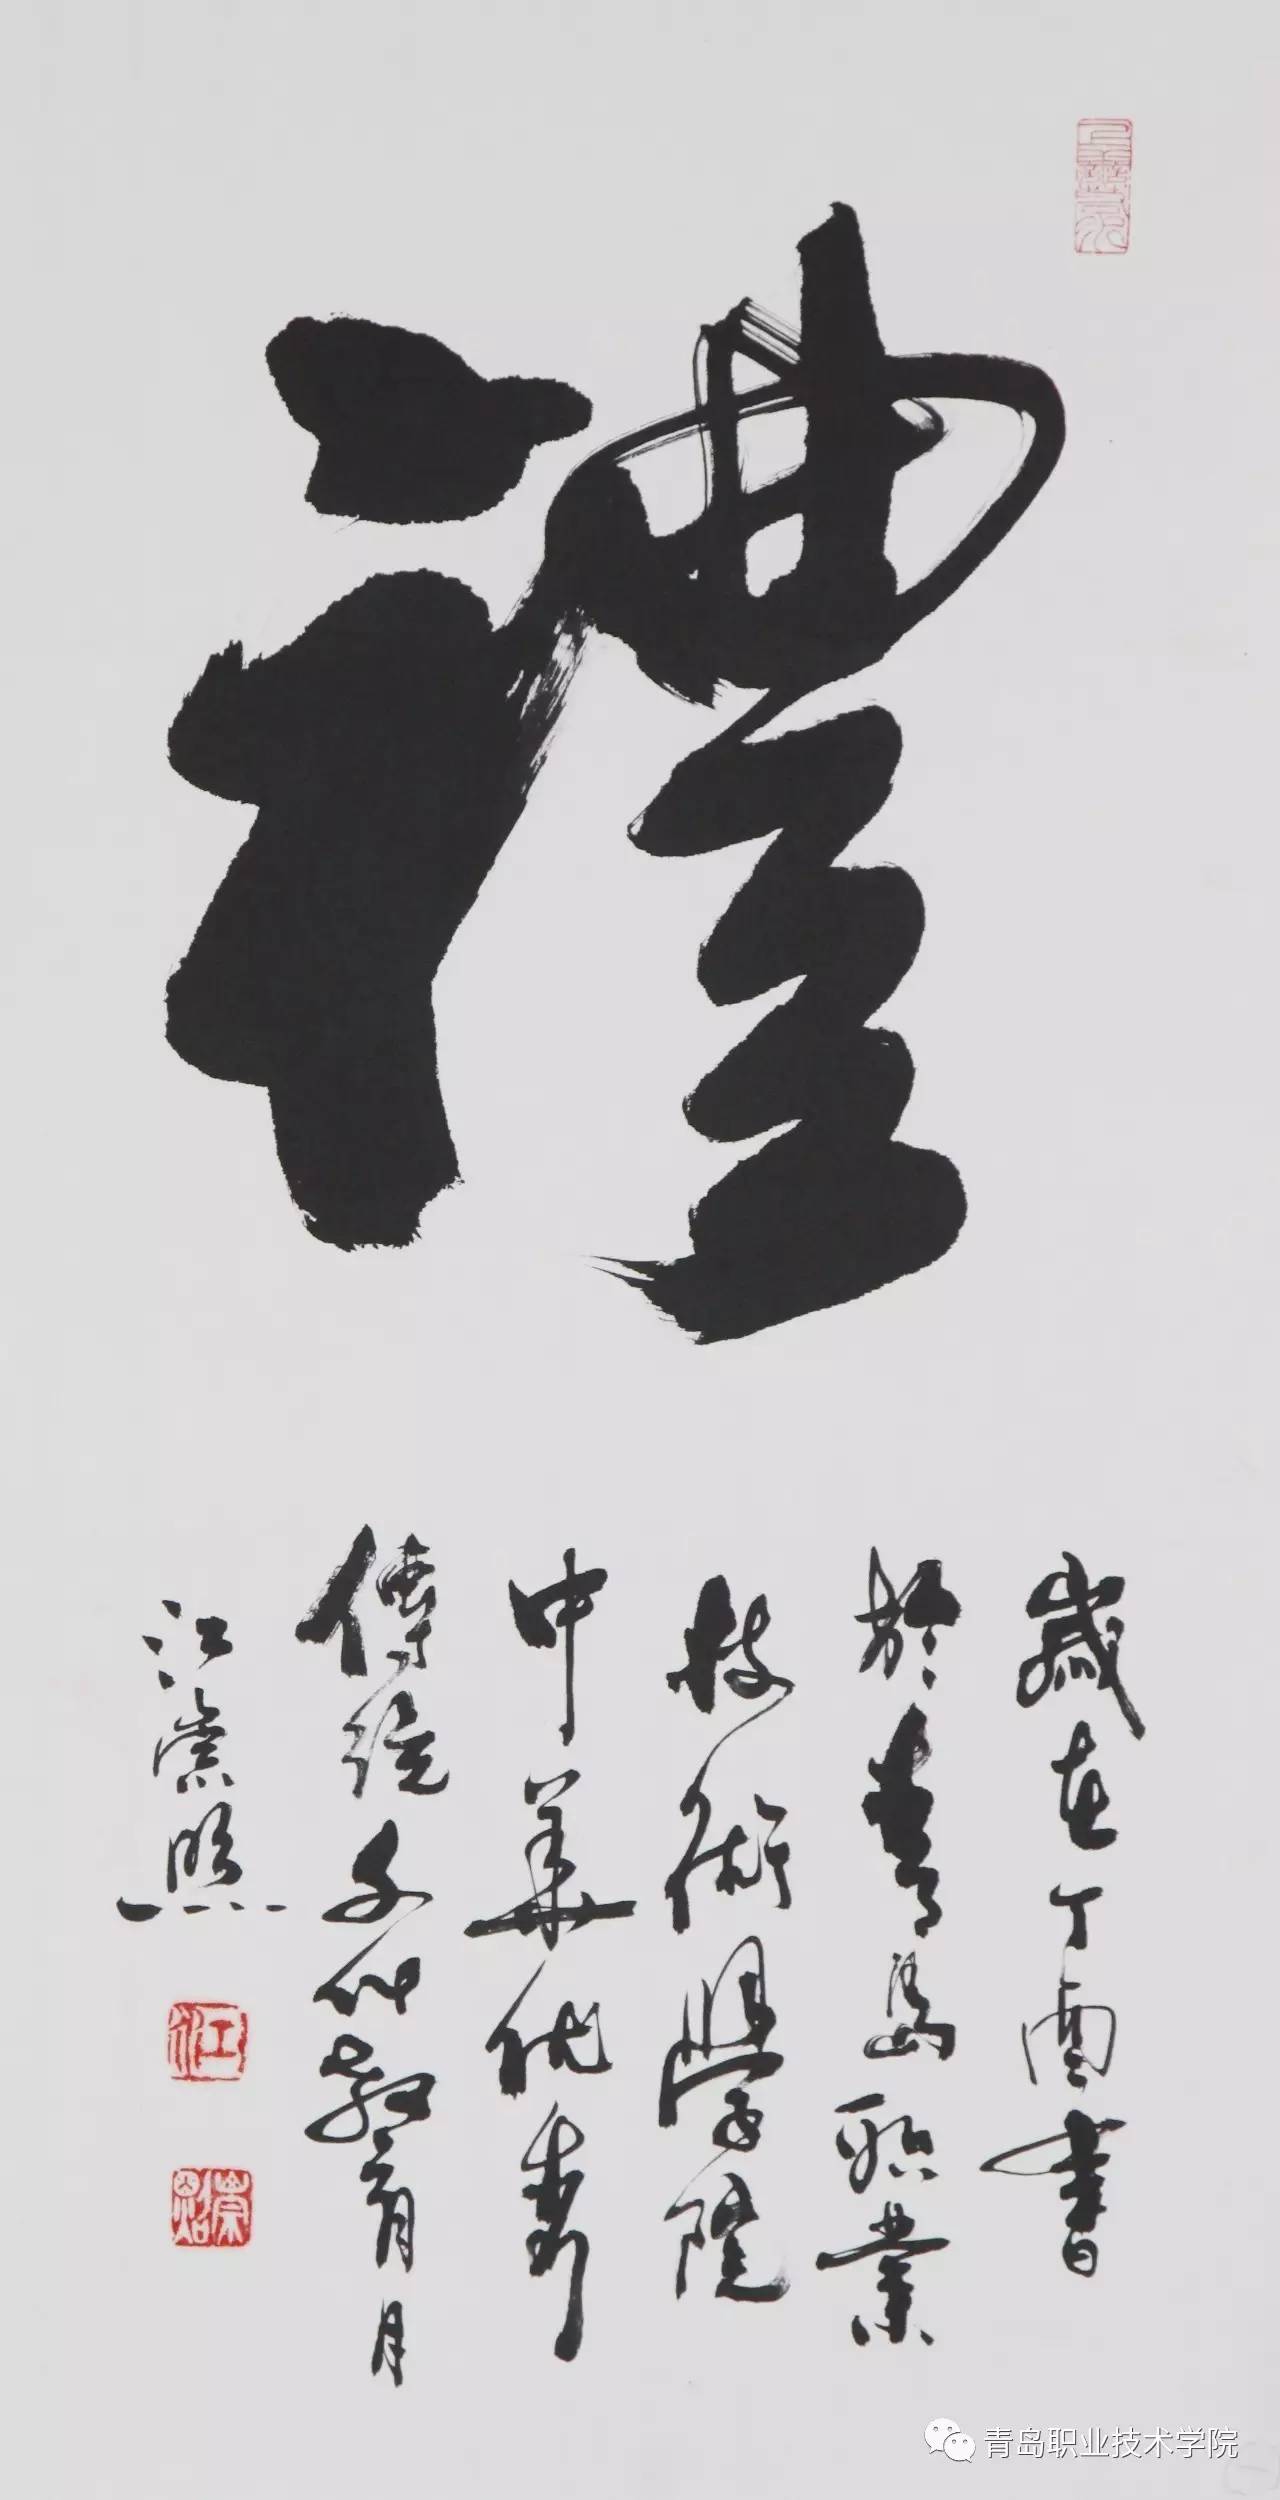 禮
歲在丁酉書
於青島職業
技術學院
中華優秀
傳統文化教育月
江崇照
江
崇照
青岛职业技术学院